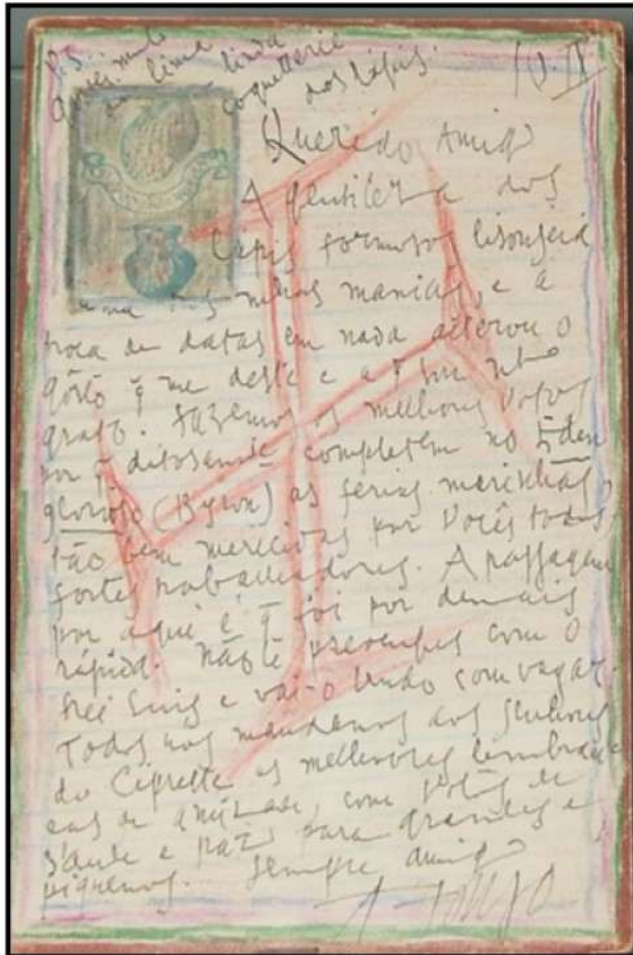 P.S.. muito
linda
coquetterie
dos lápis.
10.IV
Querido Amigo
A gentileza dos
lapis formosos lisonjeia
uma das minhas manias, e a
troca de datas em nada alterou o
gôsto q̃ me deste e a q̃ sou mto
grato. Fazemos os melhores votos
por q̃ ditosamte completem no Eden
glorioso (Byron) as ferias marinhas,
tão bem merecidas por Vocês todos
fortes trabalhadores. A passagem
por aqui é q̃ foi por demais
rápida. Não te preocupes com o
Frei Luis e vai-o lendo com vagar.
Todos nos mandamos aos Senhores
do Cipreste as melhores lembran-
ças de amizade, com votos de
saude e paz para grandes e
piquenos. Sempre amigo